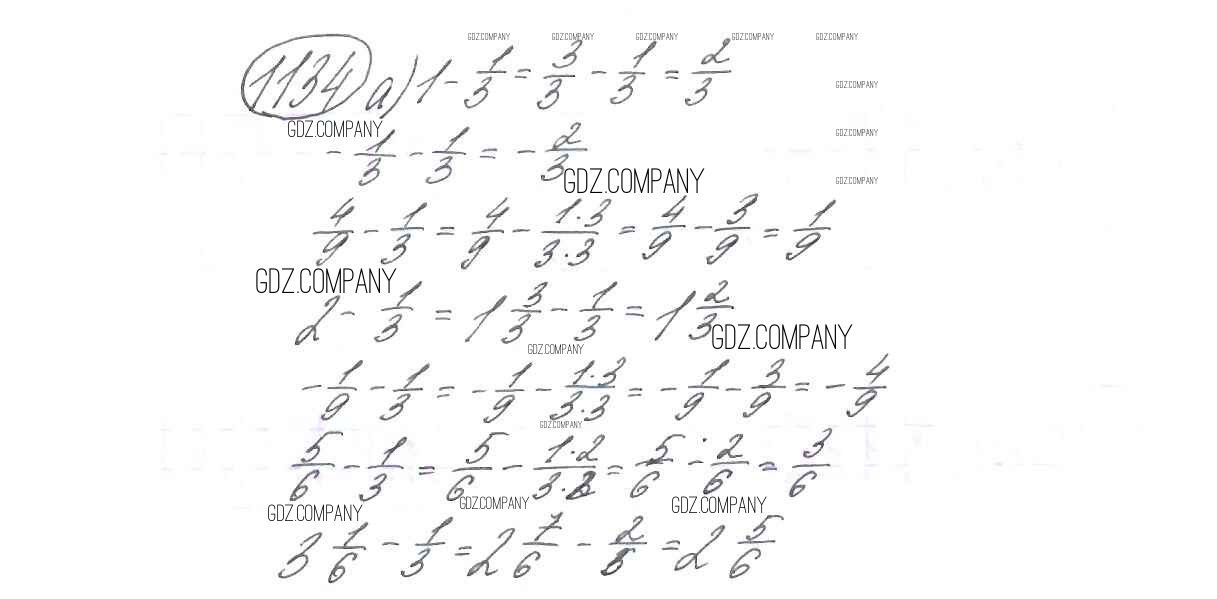 GDZ.COMPANY GDZ.COMPANY GDZ.COMPANY GDZ.COMPANY GDZ.COMPANY
1134 а) 1 - 1/3 = 3/3 - 1/3 = 2/3
GDZ.COMPANY
GDZ.COMPANY
GDZ.COMPANY
- 1/3 - 1/3 = - 2/3
GDZ.COMPANY
GDZ.COMPANY
4/9 - 1/3 = 4/9 - 1·3/3·3 = 4/9 - 3/9 = 1/9
GDZ.COMPANY
2 - 1/3 = 1 3/3 - 1/3 = 1 2/3
GDZ.COMPANY
GDZ.COMPANY
- 1/9 - 1/3 = - 1/9 - 1·3/3·3 = - 1/9 - 3/9 = - 4/9
GDZ.COMPANY
5/6 - 1/3 = 5/6 - 1·2/3·2 = 5/6 - 2/6 = 3/6
GDZ.COMPANY GDZ.COMPANY GDZ.COMPANY
3 1/6 - 1/3 = 2 7/6 - 2/6 = 2 5/6